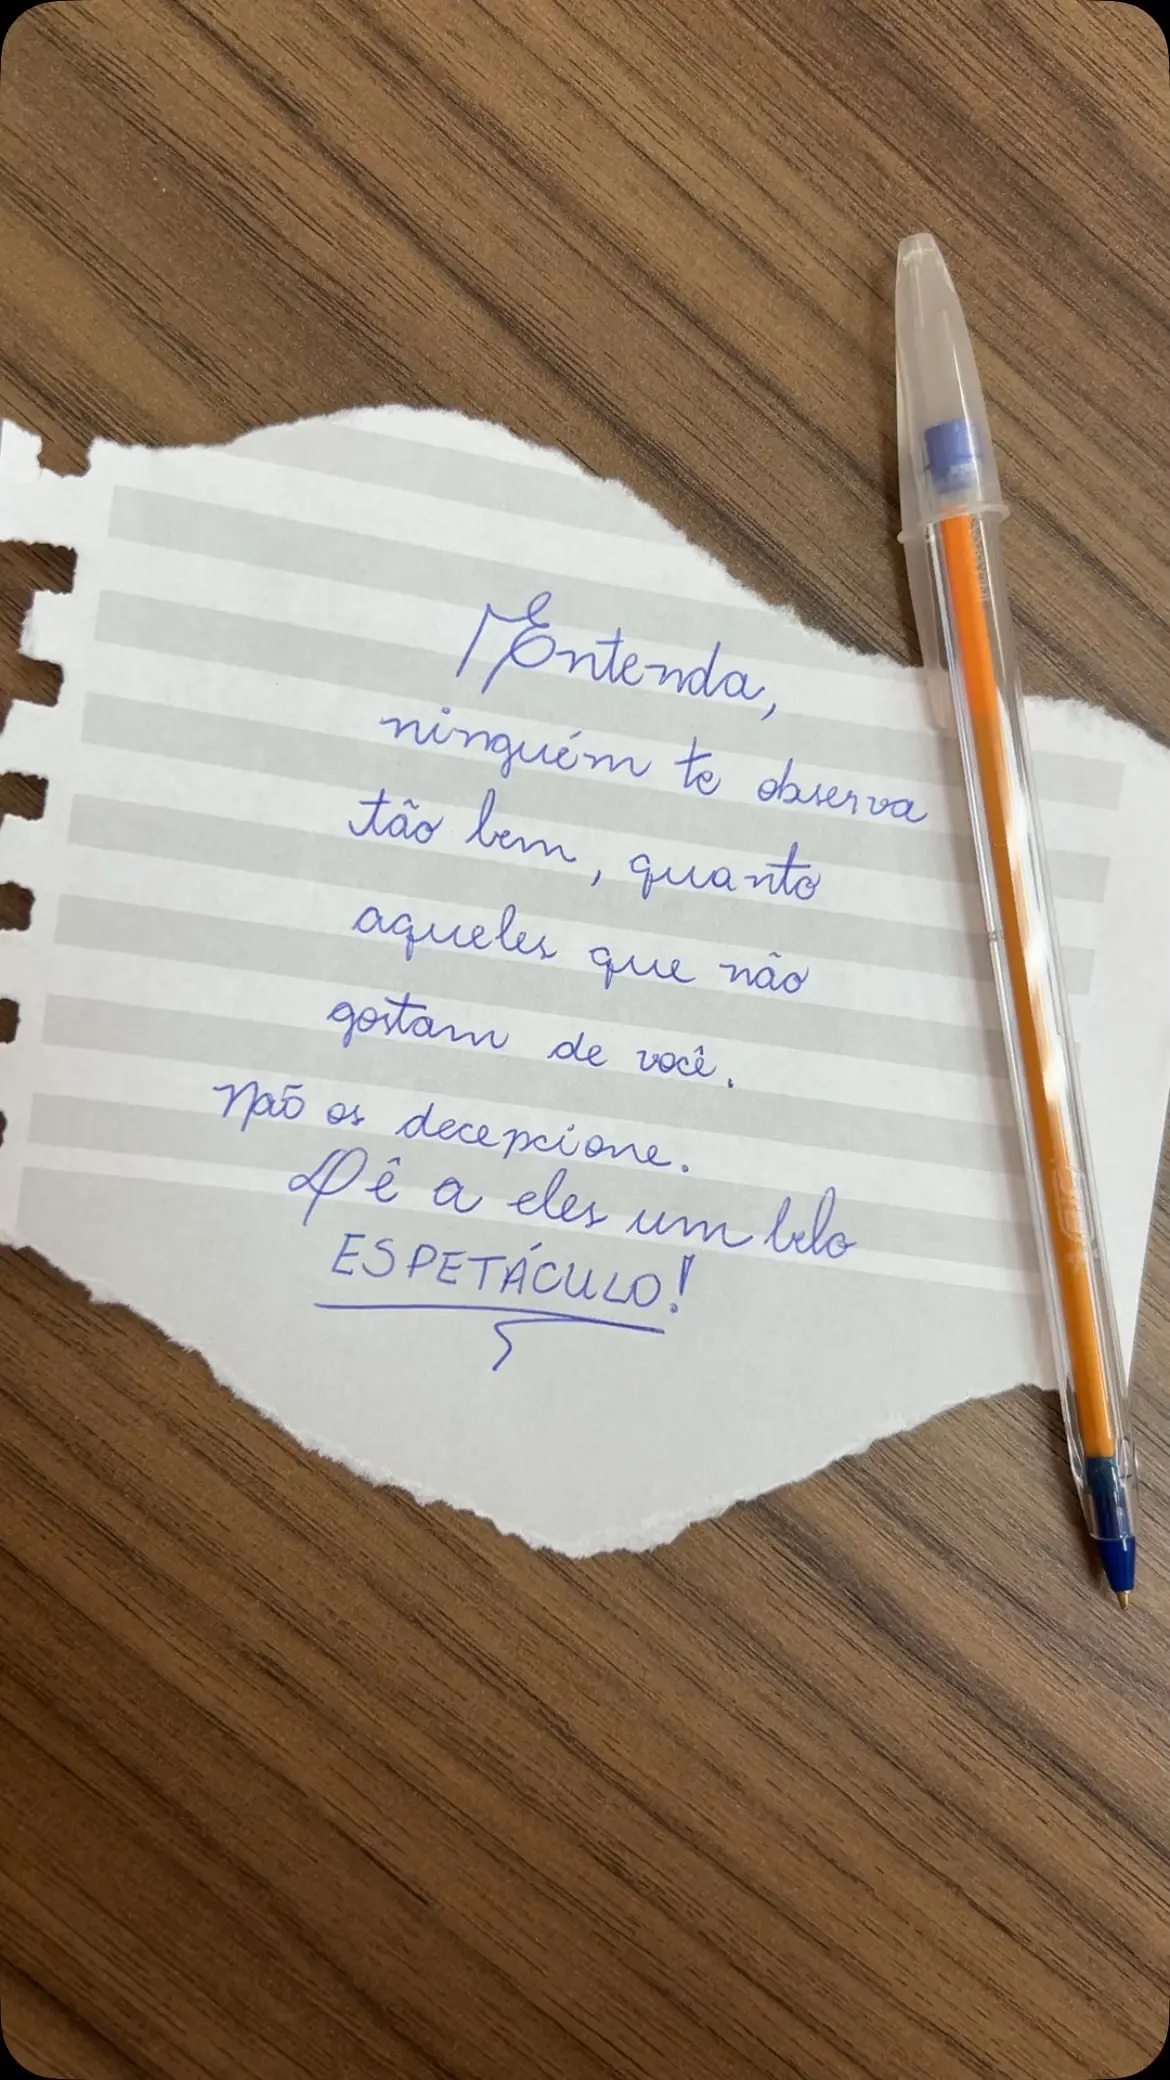 Entenda,
ninguém te observa
tão bem, quanto
aqueles que não
gostam de você.
Não os decepcione.
Dê a eles um belo
ESPETÁCULO!